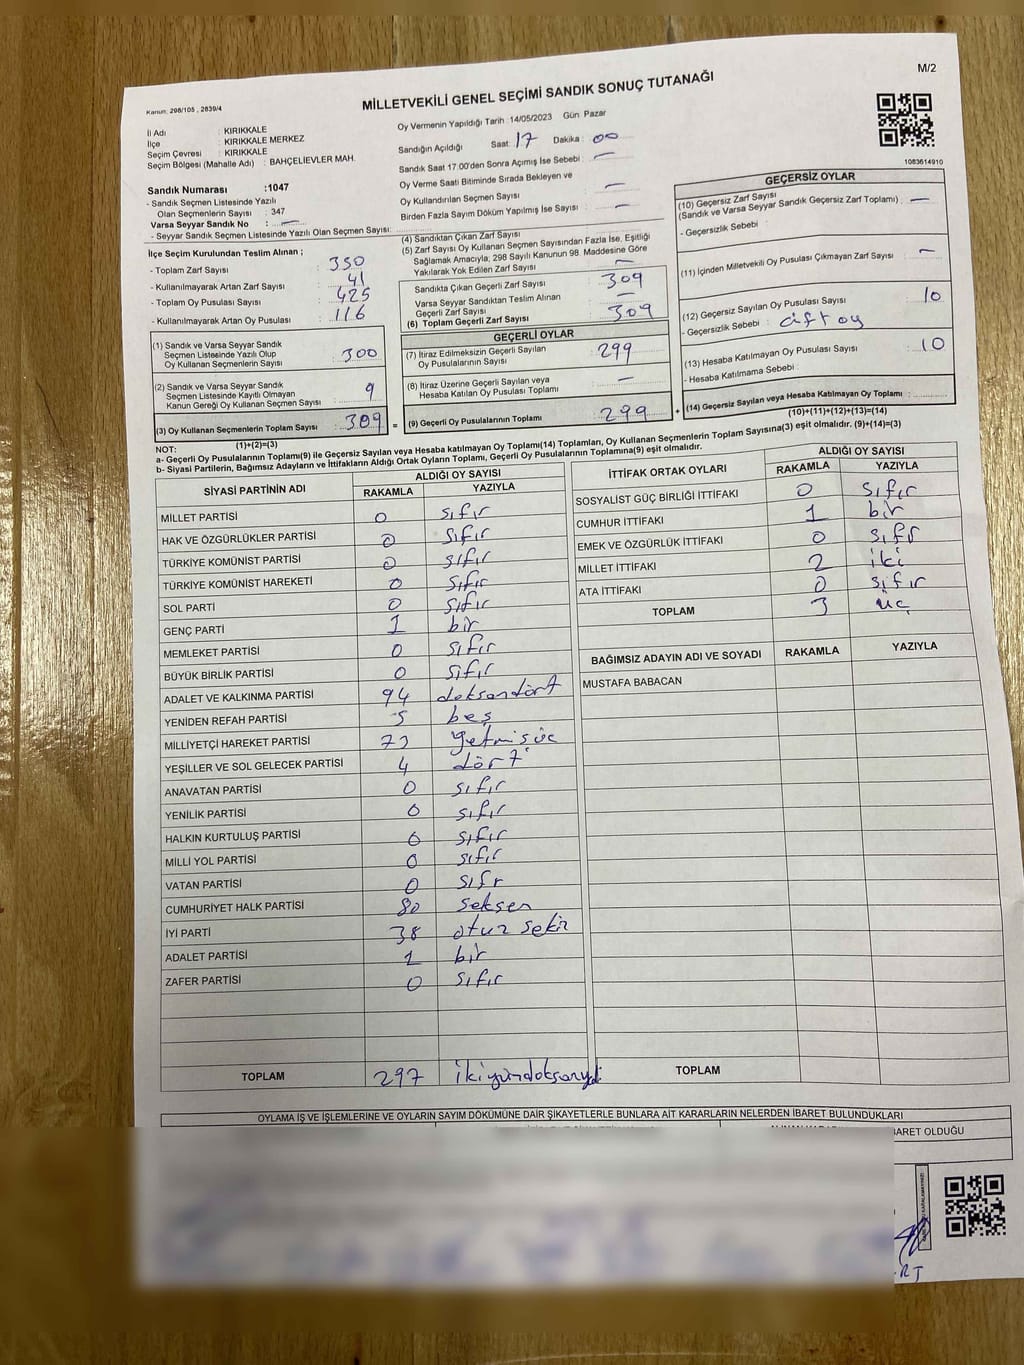 M/2
Kanun: 298/105 , 2839/4
MİLLETVEKİLİ GENEL SEÇİMİ SANDIK SONUÇ TUTANAĞI
İl Adı : KIRIKKALE
İlçe : KIRIKKALE MERKEZ
Seçim Çevresi : KIRIKKALE
Seçim Bölgesi (Mahalle Adı) : BAHÇELİEVLER MAH.
Sandık Numarası :1047
- Sandık Seçmen Listesinde Yazılı
Olan Seçmenlerin Sayısı : 347
Varsa Seyyar Sandık No : —
- Seyyar Sandık Seçmen Listesinde Yazılı Olan Seçmen Sayısı:
Oy Vermenin Yapıldığı Tarih :14/05/2023 Gün: Pazar
Sandığın Açıldığı Saat: 17 Dakika: 00
Sandık Saat 17:00'den Sonra Açımış İse Sebebi : —
Oy Verme Saati Bitiminde Sırada Bekleyen ve
Oy Kullandırılan Seçmen Sayısı : —
Birden Fazla Sayım Döküm Yapılmış İse Sayısı : —
1083614910
İlçe Seçim Kurulundan Teslim Alınan ;
- Toplam Zarf Sayısı : 350
- Kullanılmayarak Artan Zarf Sayısı : 41
- Toplam Oy Pusulası Sayısı : 425
- Kullanılmayarak Artan Oy Pusulası : 116
(1) Sandık ve Varsa Seyyar Sandık
Seçmen Listesinde Yazılı Olup
Oy Kullanan Seçmenlerin Sayısı : 300
(2) Sandık ve Varsa Seyyar Sandık
Seçmen Listesinde Kayıtlı Olmayan
Kanun Gereği Oy Kullanan Seçmen Sayısı : 9
(3) Oy Kullanan Seçmenlerin Toplam Sayısı : 309 =
(1)+(2)=(3)
(4) Sandıktan Çıkan Zarf Sayısı
(5) Zarf Sayısı Oy Kullanan Seçmen Sayısından Fazla İse, Eşitliği
Sağlamak Amacıyla, 298 Sayılı Kanunun 98. Maddesine Göre
Yakılarak Yok Edilen Zarf Sayısı : —
Sandıkta Çıkan Geçerli Zarf Sayısı : 309
Varsa Seyyar Sandıktan Teslim Alınan
Geçerli Zarf Sayısı : —
(6) Toplam Geçerli Zarf Sayısı : 309
GEÇERLİ OYLAR
(7) İtiraz Edilmeksizin Geçerli Sayılan
Oy Pusulalarının Sayısı : 299
(8) İtiraz Üzerine Geçerli Sayılan veya
Hesaba Katılan Oy Pusulası Toplamı : —
(9) Geçerli Oy Pusulalarının Toplamı : 299 +
GEÇERSİZ OYLAR
(10) Geçersiz Zarf Sayısı
(Sandık ve Varsa Seyyar Sandık Geçersiz Zarf Toplamı) : —
- Geçersizlik Sebebi :
(11) İçinden Milletvekili Oy Pusulası Çıkmayan Zarf Sayısı : —
(12) Geçersiz Sayılan Oy Pusulası Sayısı : 10
- Geçersizlik Sebebi : çift oy
(13) Hesaba Katılmayan Oy Pusulası Sayısı : 10
- Hesaba Katılmama Sebebi :
(14) Geçersiz Sayılan veya Hesaba Katılmayan Oy Toplamı :
(10)+(11)+(12)+(13)=(14)
NOT:
a- Geçerli Oy Pusulalarının Toplamı(9) ile Geçersiz Sayılan veya Hesaba katılmayan Oy Toplamı(14) Toplamları, Oy Kullanan Seçmenlerin Toplam Sayısına(3) eşit olmalıdır. (9)+(14)=(3)
b- Siyasi Partilerin, Bağımsız Adayların ve İttifakların Aldığı Ortak Oyların Toplamı, Geçerli Oy Pusulalarının Toplamına(9) eşit olmalıdır.
SİYASİ PARTİNİN ADI ALDIĞI OY SAYISI
RAKAMLA YAZIYLA
MİLLET PARTİSİ 0 sıfır
HAK VE ÖZGÜRLÜKLER PARTİSİ 0 sıfır
TÜRKİYE KOMÜNİST PARTİSİ 0 sıfır
TÜRKİYE KOMÜNİST HAREKETİ 0 sıfır
SOL PARTİ 0 sıfır
GENÇ PARTİ 1 bir
MEMLEKET PARTİSİ 0 sıfır
BÜYÜK BİRLİK PARTİSİ 0 sıfır
ADALET VE KALKINMA PARTİSİ 94 doksandört
YENİDEN REFAH PARTİSİ 5 beş
MİLLİYETÇİ HAREKET PARTİSİ 73 yetmişüç
YEŞİLLER VE SOL GELECEK PARTİSİ 4 dört
ANAVATAN PARTİSİ 0 sıfır
YENİLİK PARTİSİ 0 sıfır
HALKIN KURTULUŞ PARTİSİ 0 sıfır
MİLLİ YOL PARTİSİ 0 sıfır
VATAN PARTİSİ 0 sıfr
CUMHURİYET HALK PARTİSİ 80 seksen
İYİ PARTİ 38 otuz sekiz
ADALET PARTİSİ 1 bir
ZAFER PARTİSİ 0 sıfır
TOPLAM 297
İTTİFAK ORTAK OYLARI ALDIĞI OY SAYISI
RAKAMLA YAZIYLA
SOSYALİST GÜÇ BİRLİĞİ İTTİFAKI 0 sıfır
CUMHUR İTTİFAKI 1 bir
EMEK VE ÖZGÜRLÜK İTTİFAKI 0 sıfr
MİLLET İTTİFAKI 2 iki
ATA İTTİFAKI 0 sıfır
TOPLAM 3 üç
BAĞIMSIZ ADAYIN ADI VE SOYADI RAKAMLA YAZIYLA
MUSTAFA BABACAN
TOPLAM
OYLAMA İŞ VE İŞLEMLERİNE VE OYLARIN SAYIM DÖKÜMÜNE DAİR ŞİKAYETLERLE BUNLARA AİT KARARLARIN NELERDEN İBARET BULUNDUKLARI
OLDUĞU